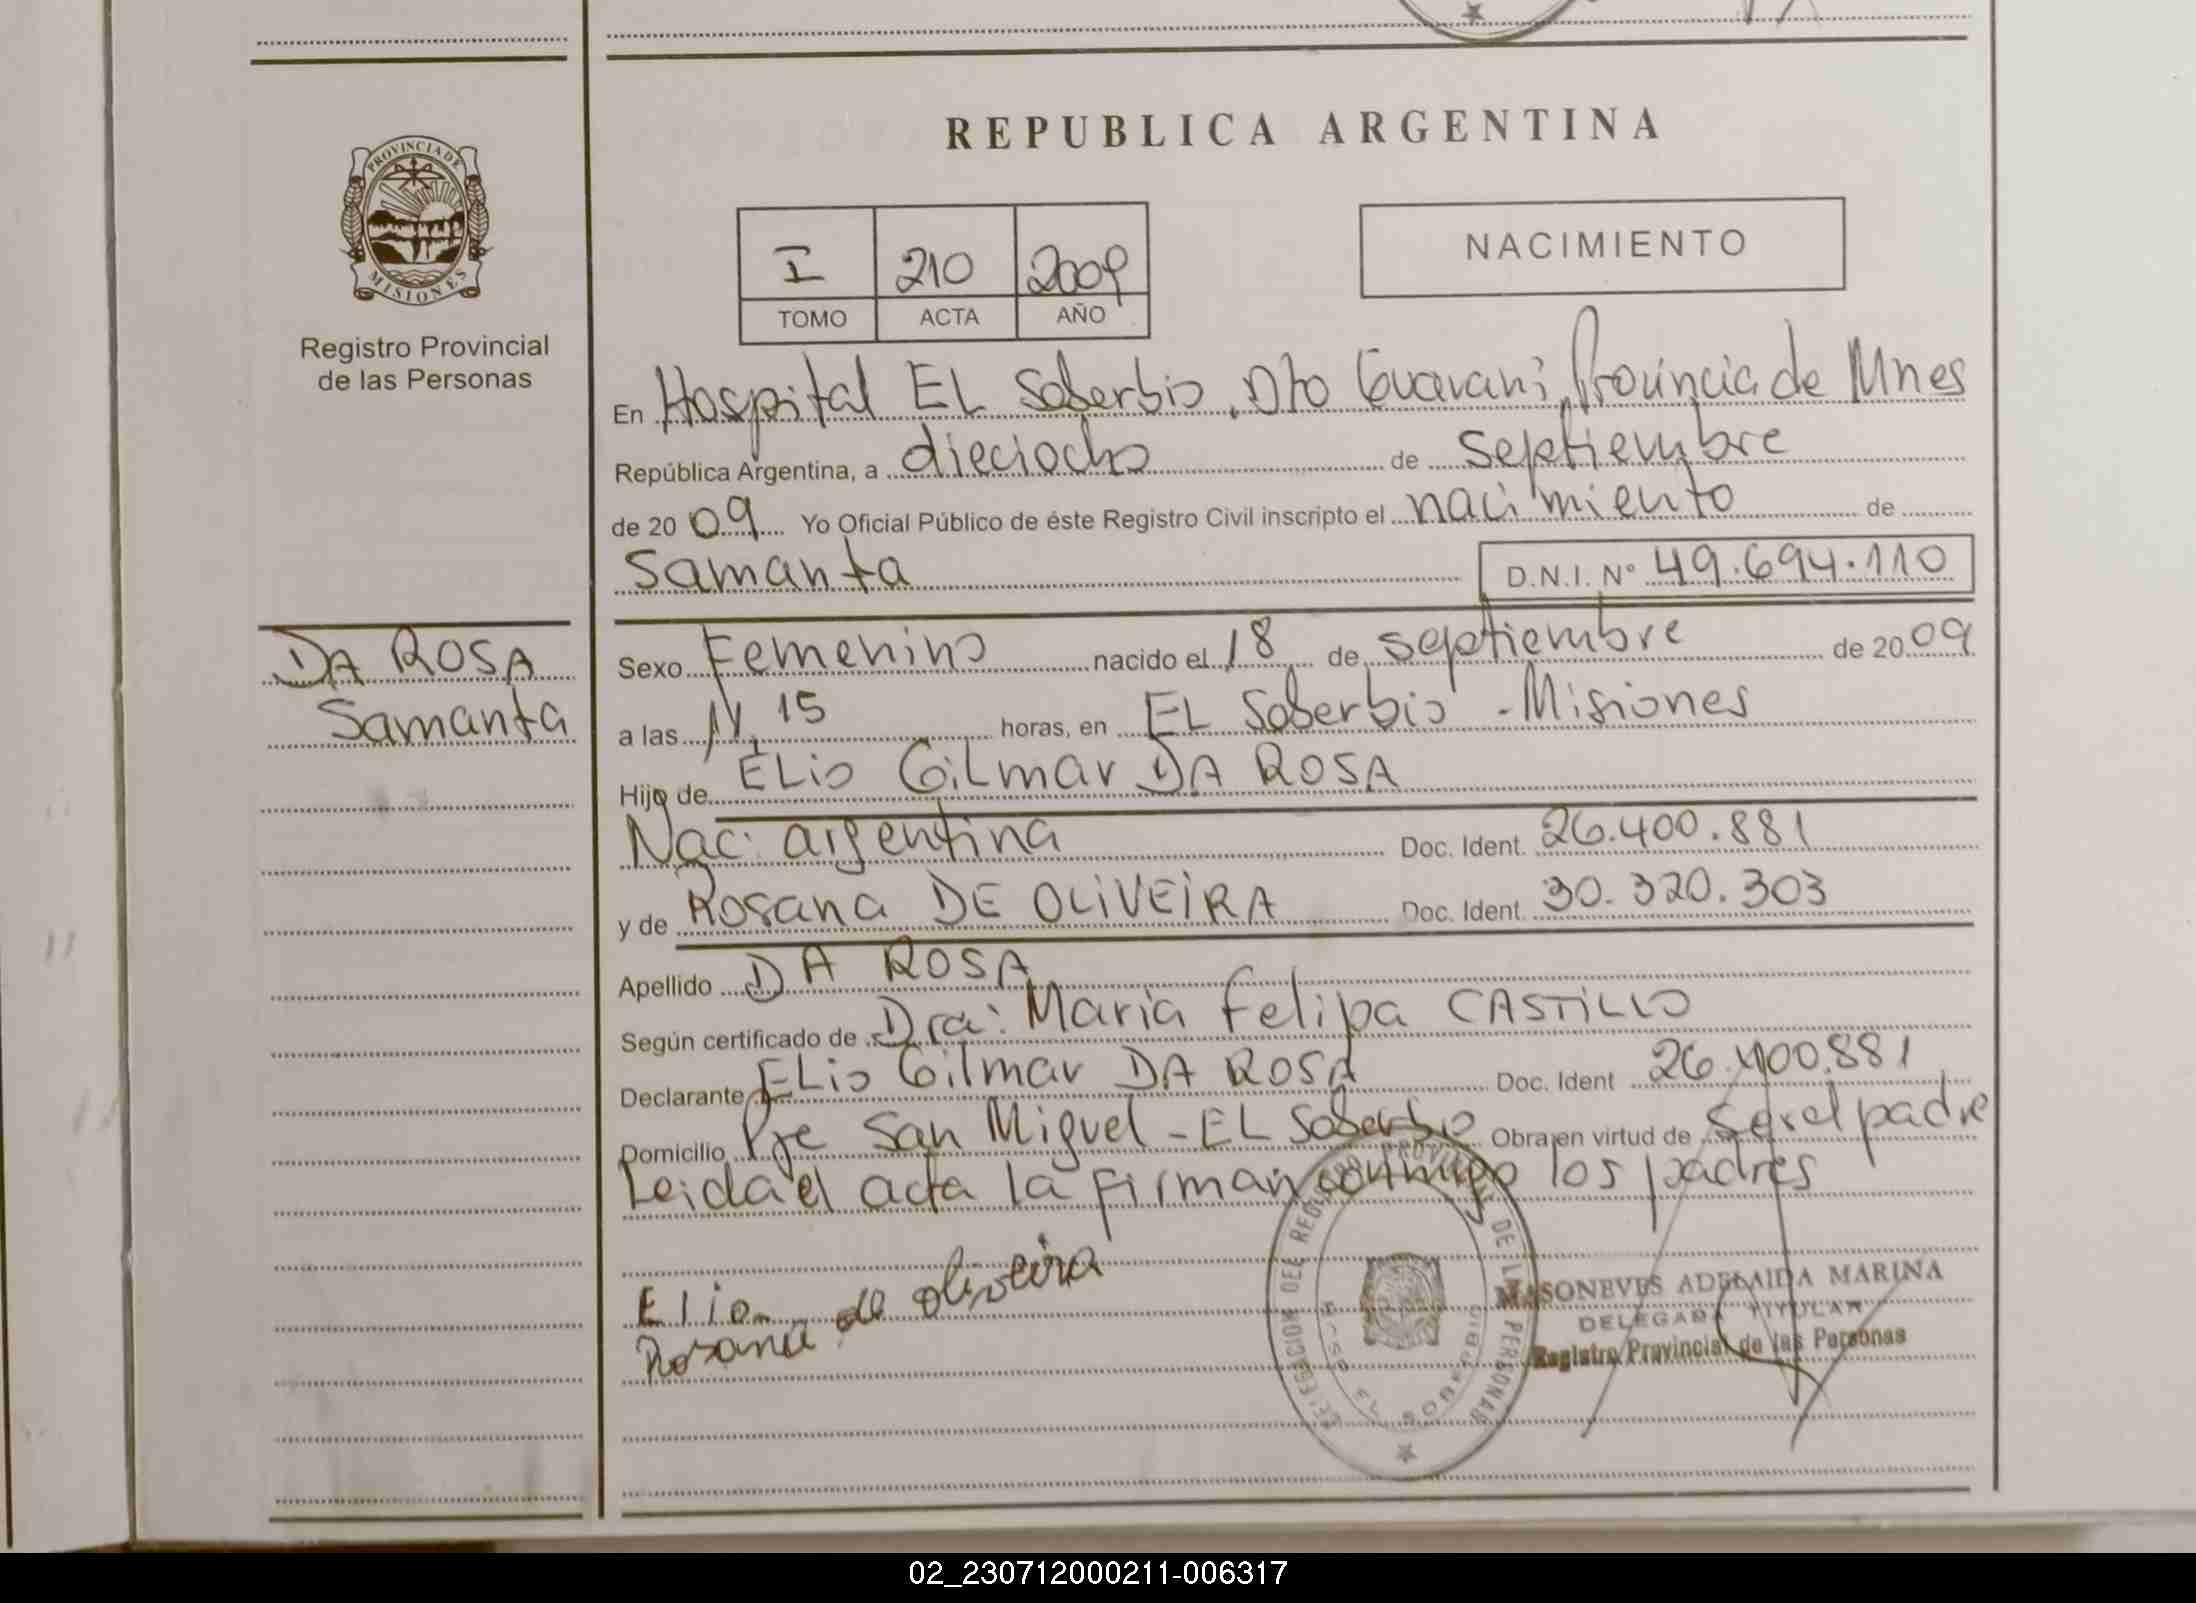 REPUBLICA ARGENTINA
PROVINCIA DE
MISIONES
Registro Provincial
de las Personas
I 210 2009
TOMO ACTA AÑO
NACIMIENTO
En Hospital EL Soberbio, Dto Guarani, Provincia de Mnes
República Argentina, a dieciocho de septiembre
de 2009 Yo Oficial Público de éste Registro Civil inscripto el nacimiento de
Samanta D.N.I. Nº 49.694.110
DA ROSA
Samanta
Sexo Femenino nacido el 18 de septiembre de 2009
a las 11,15 horas, en EL Soberbio - Misiones
Hijo de ELio Gilmar DA ROSA
Nac: argentina Doc. Ident. 26.400.881
y de Rosana DE OLIVEIRA Doc. Ident. 30.320.303
Apellido DA ROSA
Según certificado de Dra: Maria Felipa CASTILLO
Declarante ELio Gilmar DA ROSA Doc. Ident 26.400.881
Domicilio Pje San Miguel - EL Soberbio Obra en virtud de ser el padre
Leida el acta la firman conmigo los padres
Elio
Rosana de oliveira
DELEGACION DEL REGISTRO PROVINCIAL DE LAS PERSONAS
EL SOBERBIO
MASONEVES ADELAIDA MARINA
DELEGADA TITULAR
Registro Provincial de las Personas
02_230712000211-006317